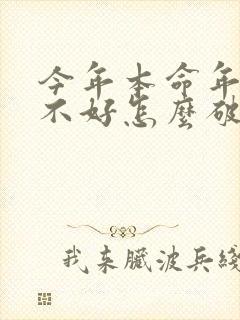 今年本命年
不好怎麼破
我来臓波兵綫